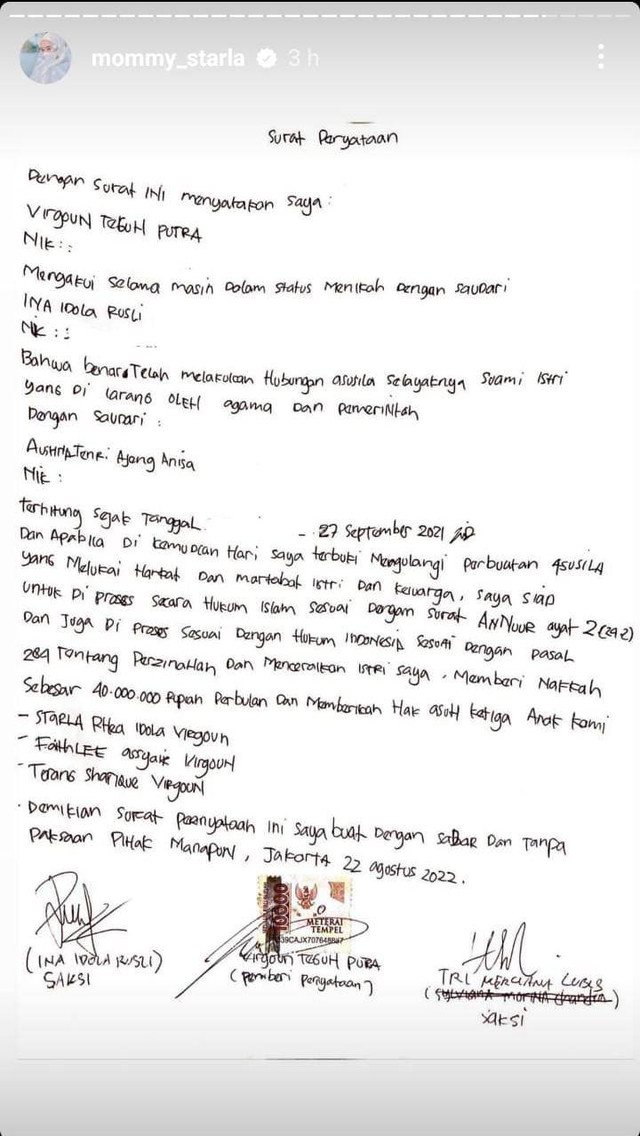 mommy_starla 3 h
Surat Peryataan
Dengan surat INI menyatakan saya :
VIRGOUN TEGUH PUTRA
NIK : :
Mengakui selama masih Dalam status Menikah Dengan saudari
INA IDOLA RUSLI
NIK : :
Bahwa benar Telah melakukan Hubungan asusila selayaknya Suami istri
yang Di larang OLEH agama Dan Pemerintah
Dengan saudari :
Tenri Ajeng Anisa
NIK :
terhitung sejak Tanggal - 27 September 2021
Dan Apabila Di kemudian Hari saya terbukti Mengulangi perbuatan ASUSILA
yang Melukai Harkat Dan martabat istri Dan keluarga, saya siap
untuk Di proses secara Hukum Islam sesuai Dengan surat ANNUUR ayat 2 (24:2)
Dan Juga Di proses sesuai Dengan Hukum INDONESIA sesuai Dengan pasal
284 Tentang Perzinahan Dan Menceraikan istri saya, Memberi Nafkah
Sebesar 40.000.000 Rupiah Perbulan Dan Memberikan Hak asuh ketiga Anak kami
- STARLA RHea IDOLA VIRGOUN
- FaithLEE assyaik VIRGOUN
- Terang Sharique VIRGOUN
Demikian surat peenyataan ini saya buat Dengan sadar Dan Tanpa
Paksaan Pihak Manapun, Jakarta 22 agostus 2022.
10000
METERAI
TEMPEL
(INA IDOLA RUSLI) Virgoun TEGUH PUTRA TRI
SAKSI (Pemberi Peryataan)
SAKSI